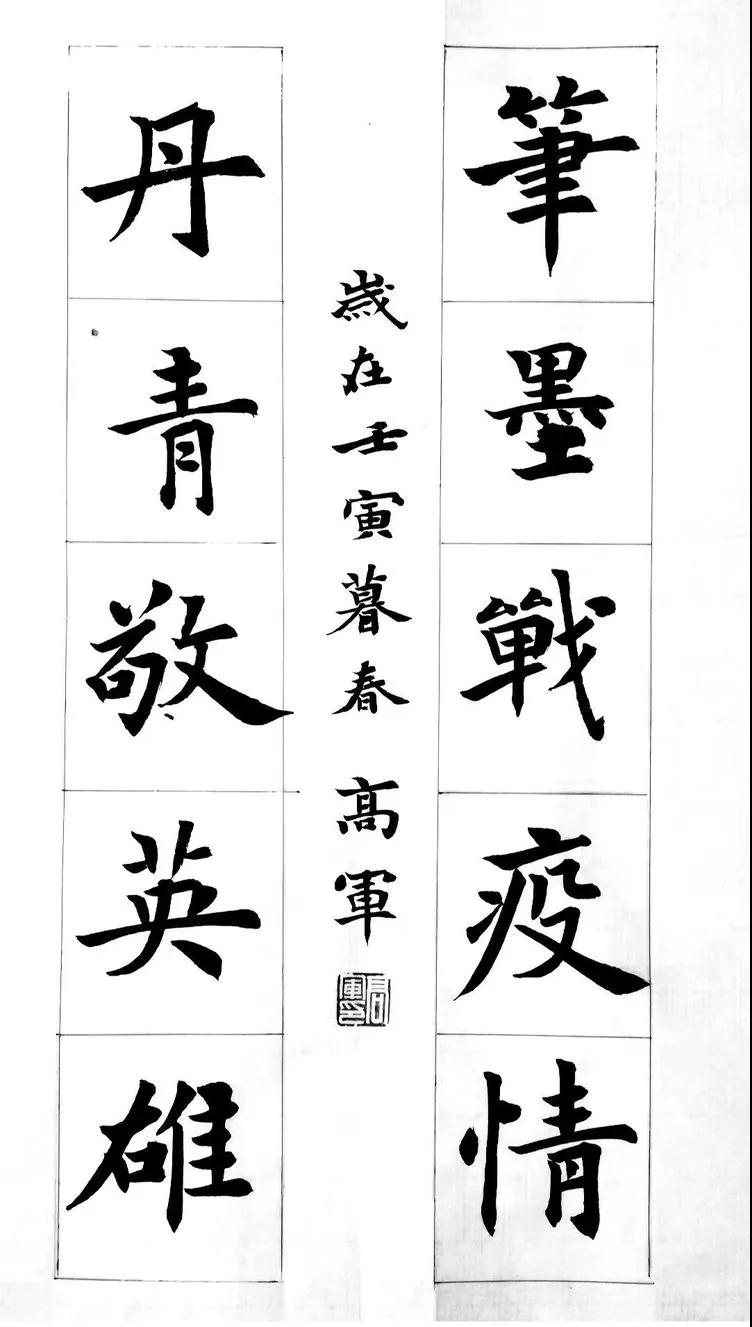 筆墨戰疫情
歲在壬寅暮春 高軍
丹青敬英雄
高軍印